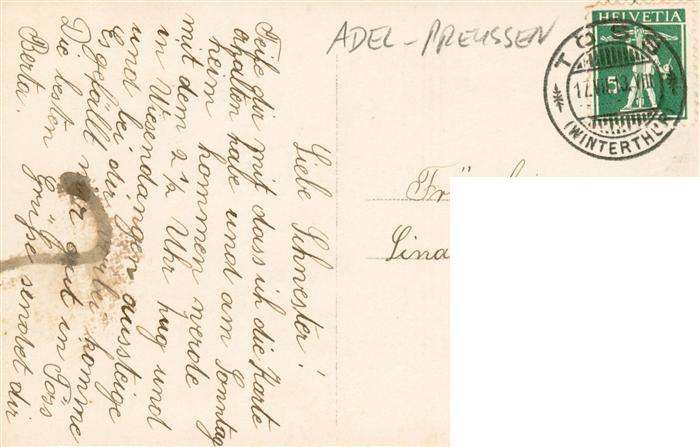 ADEL - PREUSSEN
HELVETIA
5
TÖSS
17.VII.13.VIII
(WINTERTHUR)
Liebe Schwester!
Teile dir mit dass ich die Karte
erhalten habe und am Sonntag
heim kommen werde
mit dem 2 1/2 Uhr Zug und
in Wiesendangen aussteige
und bei dir vorbei komme
Es gefällt mir gut in Töss
Die besten Grüsse sendet dir
Berta.
Lina